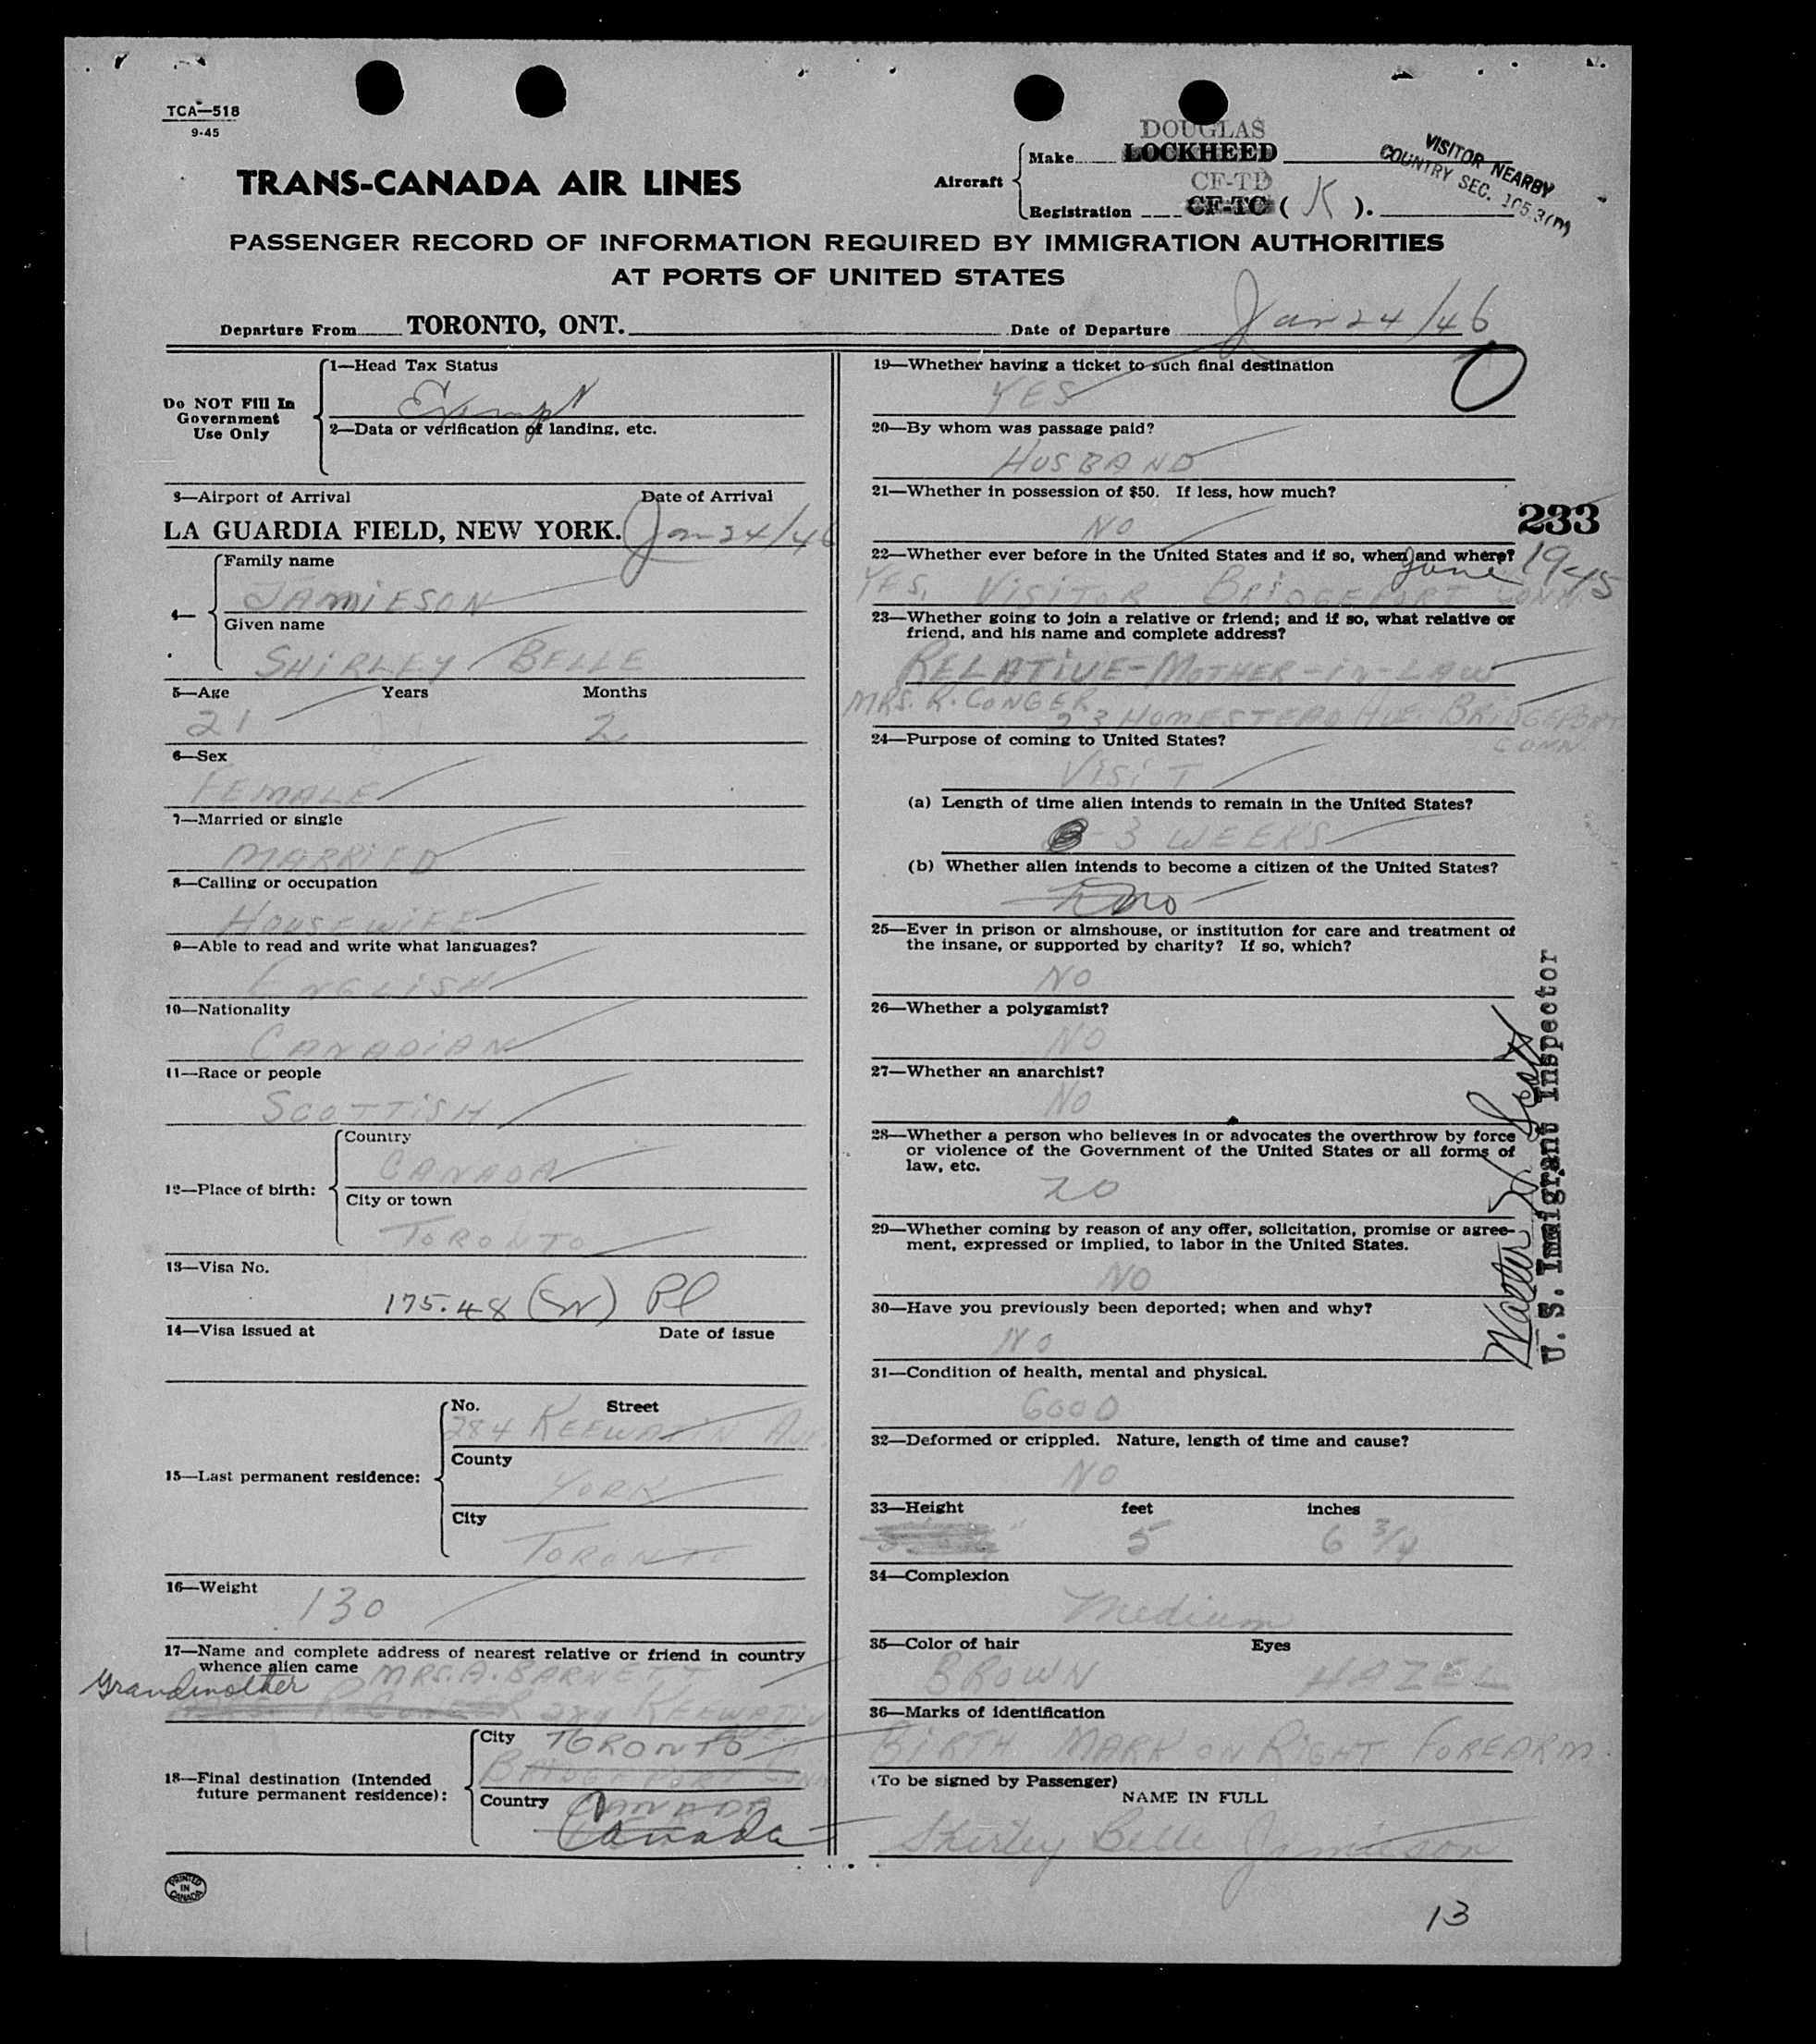 TCA—518
9-45
TRANS-CANADA AIR LINES
Aircraft
Make
DOUGLAS
LOCKHEED
Registration
CF-TD
CF-TC ( K ).
VISITOR NEARBY
COUNTRY SEC. 165.3(m)
PASSENGER RECORD OF INFORMATION REQUIRED BY IMMIGRATION AUTHORITIES
AT PORTS OF UNITED STATES
Departure From TORONTO, ONT. Date of Departure Jan 24/46
Do NOT Fill In
Government
Use Only
1—Head Tax Status
Exempt
2—Data or verification of landing, etc.
3—Airport of Arrival Date of Arrival
LA GUARDIA FIELD, NEW YORK. Jan 24/46
4—
Family name
JAMIESON
Given name
SHIRLEY BELLE
5—Age Years Months
21 2
6—Sex
FEMALE
7—Married or single
MARRIED
8—Calling or occupation
HOUSEWIFE
9—Able to read and write what languages?
ENGLISH
10—Nationality
CANADIAN
11—Race or people
SCOTTISH
12—Place of birth:
Country
CANADA
City or town
TORONTO
13—Visa No.
175.48 (W) Pl
14—Visa issued at Date of issue
15—Last permanent residence:
No. Street
284 KEEWATIN AVE.
County
YORK
City
TORONTO
16—Weight
130
17—Name and complete address of nearest relative or friend in country
whence alien came MRS. A. BARNETT
Grandmother
R. CONGER 284 KEEWATIN
AVE.
18—Final destination (Intended
future permanent residence):
City TORONTO
BRIDGEPORT CONN
Country CANADA
Canada
PRINTED
IN
CANADA
19—Whether having a ticket to such final destination
YES
0
20—By whom was passage paid?
HUSBAND
21—Whether in possession of $50. If less, how much?
NO
233
22—Whether ever before in the United States and if so, when and where?
June 1945
YES, VISITOR BRIDGEPORT CONN
23—Whether going to join a relative or friend; and if so, what relative or
friend, and his name and complete address?
RELATIVE-MOTHER-IN-LAW
MRS. R. CONGER
23 HOMESTEAD AVE. BRIDGEPORT
CONN
24—Purpose of coming to United States?
VISIT
(a) Length of time alien intends to remain in the United States?
3 WEEKS
(b) Whether alien intends to become a citizen of the United States?
no
25—Ever in prison or almshouse, or institution for care and treatment of
the insane, or supported by charity? If so, which?
NO
26—Whether a polygamist?
NO
27—Whether an anarchist?
NO
28—Whether a person who believes in or advocates the overthrow by force
or violence of the Government of the United States or all forms of
law, etc.
NO
29—Whether coming by reason of any offer, solicitation, promise or agree-
ment, expressed or implied, to labor in the United States.
NO
30—Have you previously been deported; when and why?
NO
31—Condition of health, mental and physical.
GOOD
32—Deformed or crippled. Nature, length of time and cause?
NO
33—Height feet inches
5 6 3/4
34—Complexion
Medium
35—Color of hair Eyes
BROWN HAZEL
36—Marks of identification
BIRTH MARK ON RIGHT FOREARM.
(To be signed by Passenger)
NAME IN FULL
Shirley Belle Jamieson
Walter H Scott
U. S. Immigrant Inspector
13